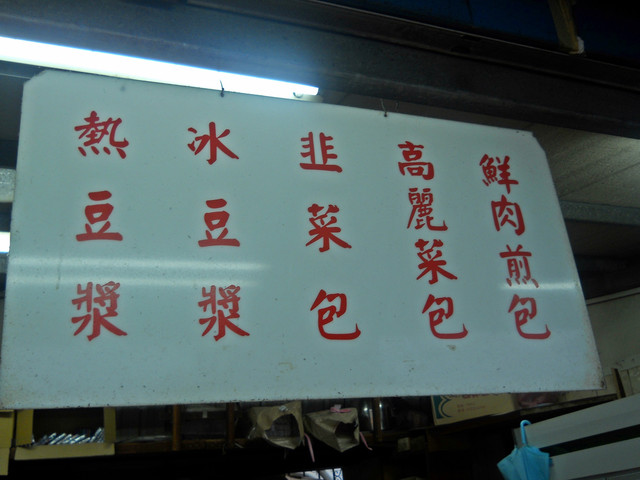 鮮肉煎包
高麗菜包
韭菜包
冰豆漿
熱豆漿